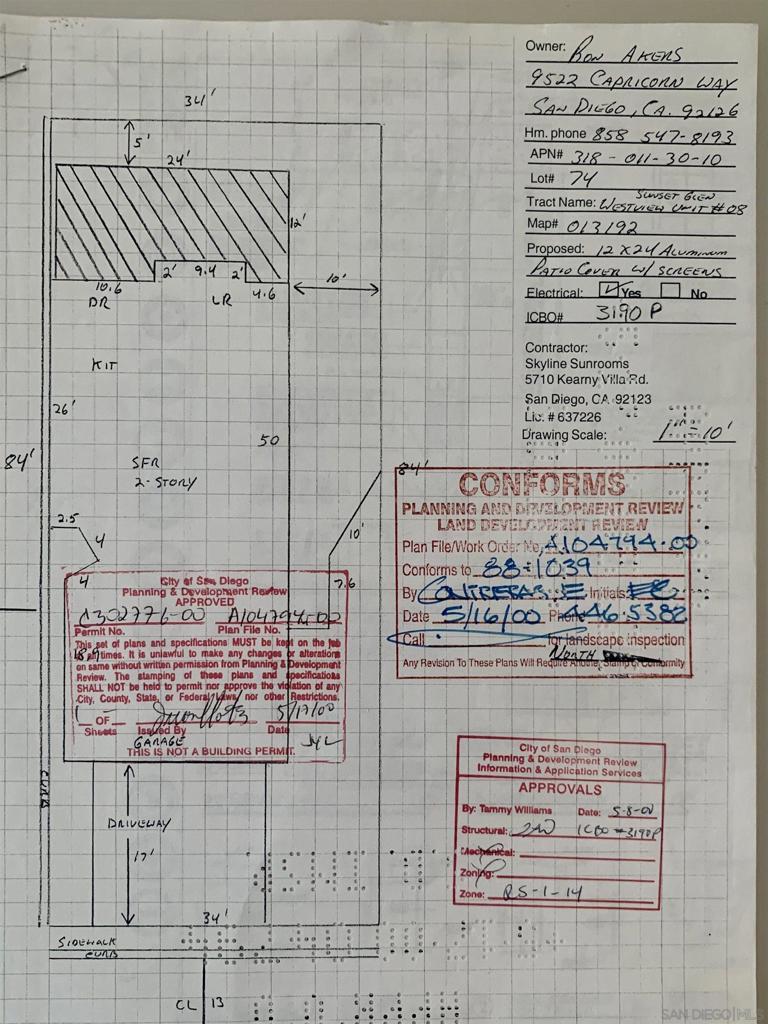 Owner: RON AKERS
9522 CAPRICORN WAY
SAN DIEGO, CA. 92126
Hm. phone 858 547-8193
APN# 318-011-30-10
Lot# 74
SUNSET GLEN
Tract Name: WESTVIEW UNIT #08
Map# 013192
Proposed: 12 X 24 ALUMINUM
PATIO COVER W/ SCREENS
Electrical: Yes No
ICBO# 3190 P
Contractor:
Skyline Sunrooms
5710 Kearny Villa Rd.
San Diego, CA 92123
Lic. # 637226
Drawing Scale: 1" = 10'
34'
5'
24'
12'
2' 9.4 2'
10.6
4.6
10'
DR LR
KIT
26'
50
84'
84'
SFR
2-STORY
2.5
4
4
10'
7.6
City of San Diego
Planning & Development Review
APPROVED
A302776-00 A104794-00
Permit No. Plan File No.
This set of plans and specifications MUST be kept on the job
at all times. It is unlawful to make any changes or alterations
on same without written permission from Planning & Development
Review. The stamping of these plans and specifications
SHALL NOT be held to permit nor approve the violation of any
City, County, State, or Federal laws nor other Restrictions.
1 OF 5/17/00
Sheets Issued By Date
GARAGE
THIS IS NOT A BUILDING PERMIT.
CONFORMS
PLANNING AND DEVELOPMENT REVIEW
LAND DEVELOPMENT REVIEW
Plan File/Work Order No. A104794-00
Conforms to 88-1039
By CONTRERAS E Initials EC
Date 5/16/00 Phone 446-5382
Call for landscape inspection
NORTH
Any Revision To These Plans Will Require Another Stamp of Conformity
City of San Diego
Planning & Development Review
Information & Application Services
APPROVALS
By: Tammy Williams Date: 5-8-00
Structural: ICBO #3190P
Mechanical:
Zoning:
Zone: RS-1-14
CURB
DRIVEWAY
17'
34'
SIDEWALK
CURB
CL 13
SAN DIEGO MLS